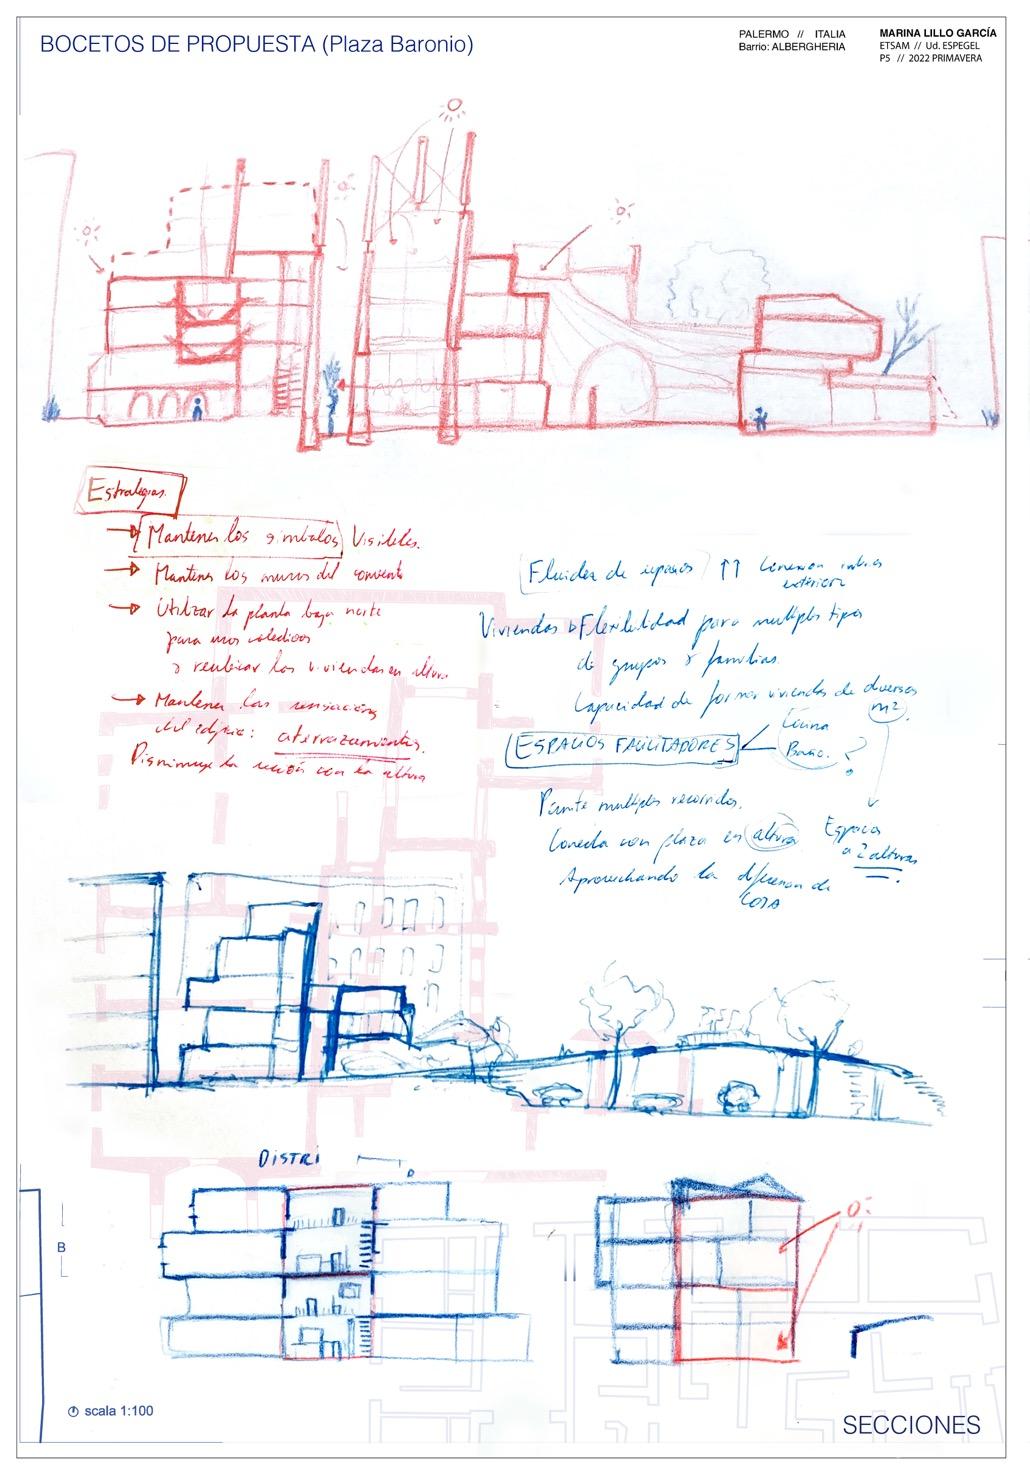 BOCETOS DE PROPUESTA (Plaza Baronio)
PALERMO // ITALIA
Barrio: ALBERGHERIA
MARINA LILLO GARCÍA
ETSAM // Ud. ESPEGEL
P5 // 2022 PRIMAVERA
Estrategias.
Mantener los símbolos Visibles.
Mantener los muros del convento
Utilizar la planta baja norte
para usos colectivos
y reubicar las viviendas en altura
Mantener las sensaciones
del edificio: aterrazamientos.
Disminuye la sección con la altura
Fluidez de espacios ↑↑ Conexion
exterior
Viviendas Flexibilidad para multiples tipos
de grupos y familias.
Capacidad de formar viviendas de diversos
m2.
ESPACIOS FACILITADORES
Cocina
Baño. ?
multiples recorridos.
Conecta con plaza en altura
Aprovechando la diferencia de
COTA
Espacios
a 2 alturas
DISTRI
B
scala 1:100
SECCIONES